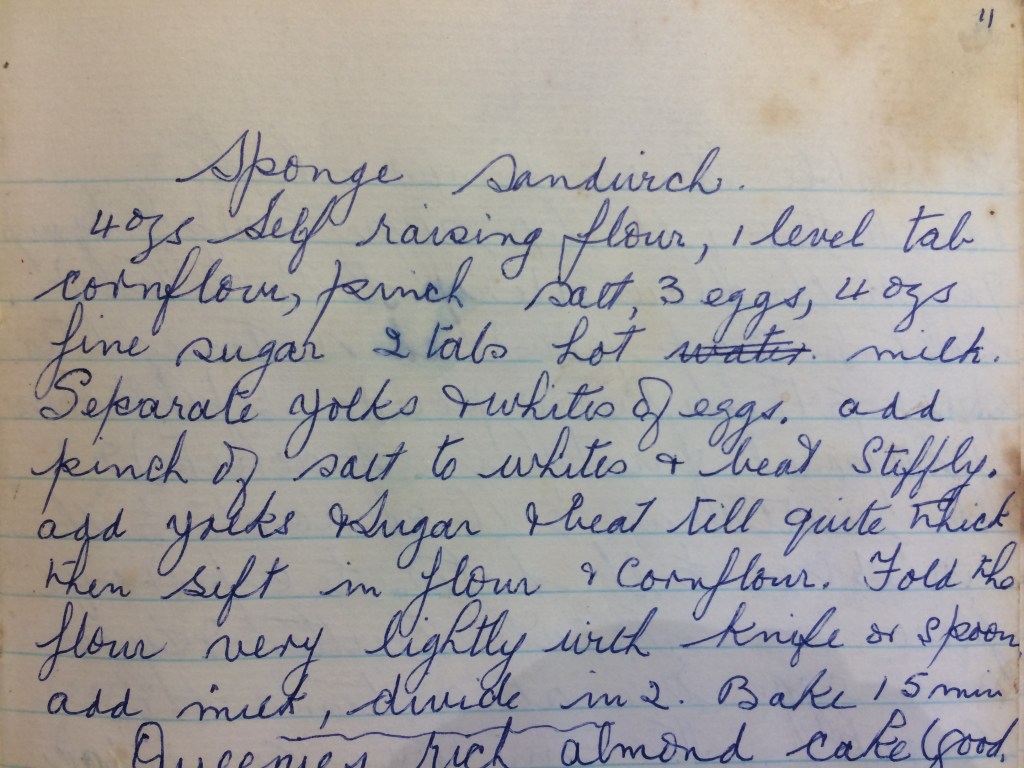 11
Sponge Sandwich.
4ozs Self raising flour, 1 level tab
cornflour, pinch salt, 3 eggs, 4 ozs
fine sugar 2 tabs hot water. milk.
Separate yolks & whites of eggs. add
pinch of salt to whites & beat Stiffly.
add yolks & Sugar & beat till quite thick
then sift in flour & Cornflour. Fold the
flour very lightly with knife or spoon,
add milk, divide in 2. Bake 15 min
Queenies rich almond cake (good,